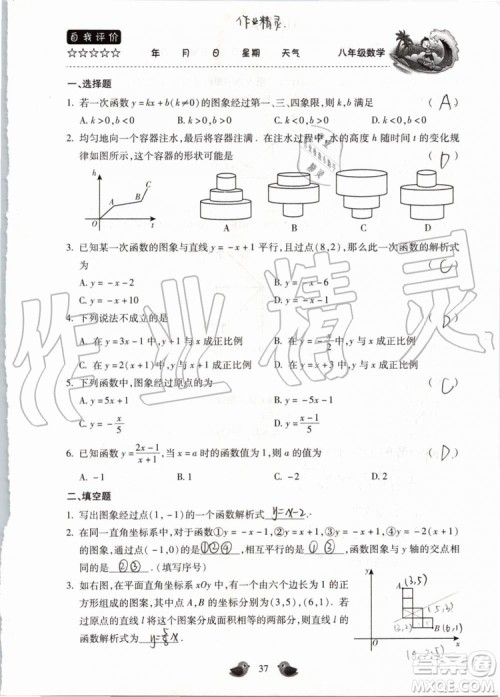 作业精灵
自我评价
☆☆☆☆☆ 年 月 日 星期 天气 八年级数学
一、选择题
1. 若一次函数 y=kx+b(k≠0)的图象经过第一、三、四象限,则 k,b 满足 ( A )
A. k>0,b<0 B. k>0,b>0 C. k<0,b>0 D. k<0,b<0
2. 均匀地向一个容器注水,最后将容器注满. 在注水过程中,水的高度 h 随时间 t 的变化规
律如图所示,这个容器的形状可能是 ( D )
h
A
B
C
O
t
A B C D
3. 已知某一次函数的图象与直线 y=-x+1 平行,且过点(8,2),那么此一次函数的解析式
为 ( C )
A. y=-x-2 B. y=-x-6
C. y=-x+10 D. y=-x-1
4. 下列说法不成立的是 ( D )
A. 在 y=3x-1 中,y+1 与 x 成正比例 B. 在 y=-x/2 中,y 与 x 成正比例
C. 在 y=2(x+1) 中,y 与 x+1 成正比例 D. 在 y=x+3 中,y 与 x 成正比例
5. 下列函数中,图象经过原点的为 ( C )
A. y=5x+1 B. y=-5x-1
C. y=-x/5 D. y=(x-1)/5
6. 已知函数 y=(2x-1)/(x+1),当 x=a 时的函数值为 1,则 a 的值为 ( D )
A. -1 B. 1 C. -2 D. 2
二、填空题
1. 写出图象经过点(1,-1)的一个函数解析式 y=x-2.
2. 在同一直角坐标系中,对于函数①y=-x-1,②y=x+1,③y=-x+1,④y=-2(x+1)
的图象,通过点(-1,0)的是 ①②④,相互平行的是 ①③,函数图象与 y 轴的交点相
同的是 ②③.
3. 如右图,在平面直角坐标系 xOy 中,有一个由六个边长为 1 的正
方形组成的图案,其中点 A,B 的坐标分别为(3,5),(6,1). 若过
原点的直线 l 将这个图案分成面积相等的两部分,则直线 l 的
函数解析式为 y=
y
A (3,5)
B (6,1)
O
x
37